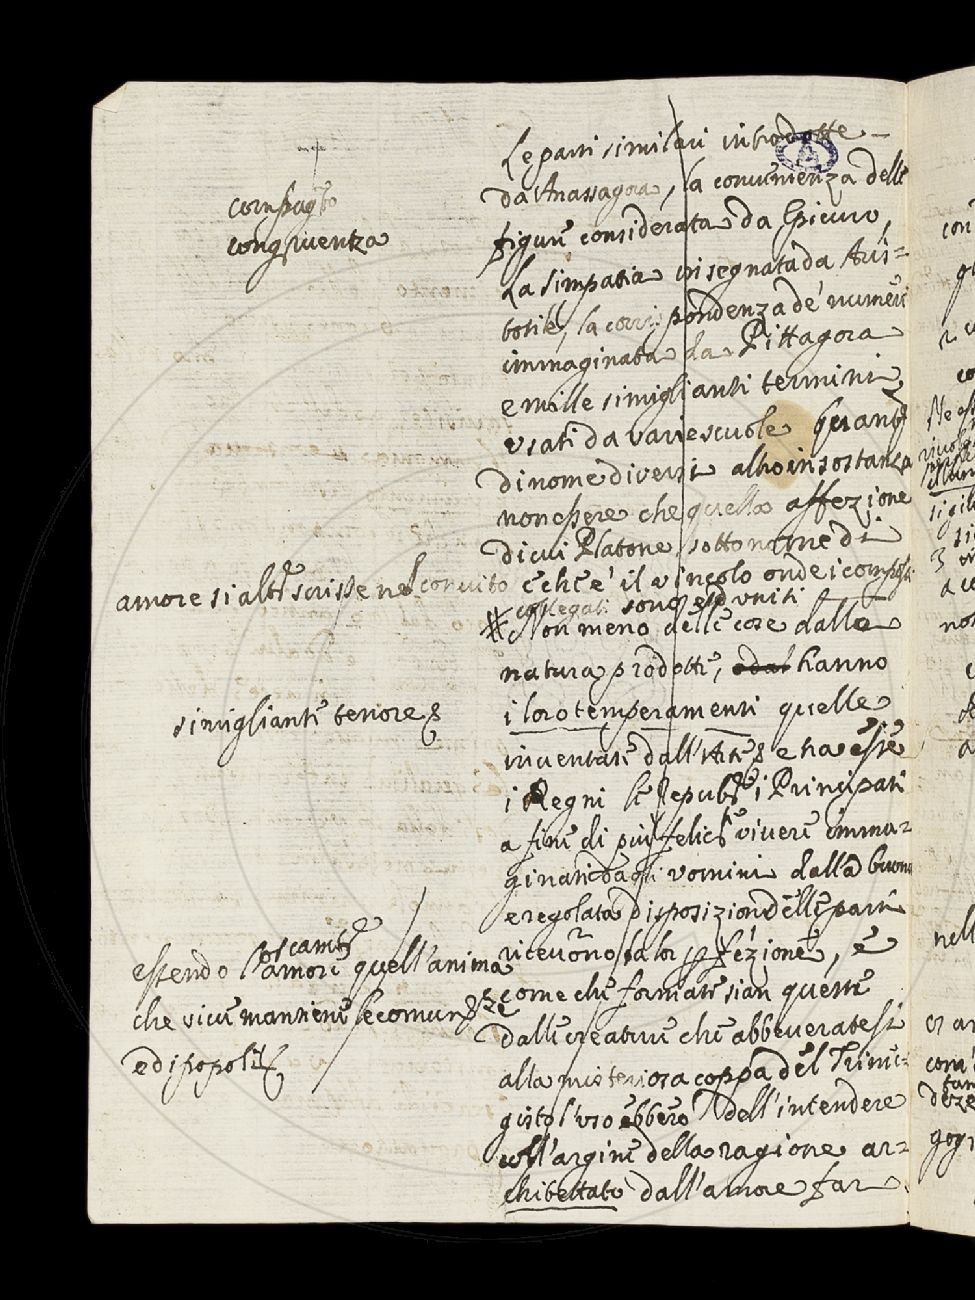 Le parti similari introdotte
da Anassagora, la convenienza delle
figure considerata da Epicuro,
La simpatia insegnata da Aris=
totile, la corrispondenza de' numeri
immaginata da Pittagora
e mille simiglianti termini
usati da varie scuole
di nome diversi altro in sostanza
non essere che quella affezione
di cui Platone sotto nome di
amore sì altamte scrisse nel convito
e che è il vincolo onde i composti
collegati sono ed uniti
Non meno delle cose dalla
natura prodotte, hanno
i loro temperamenti quelle
inventate dall'Arte, e tra esse
i Regni le Republe i Principati
a fine di più felice vivere imma=
ginati dagli vomini dalla buona
e regolata disposizion delle parti
ricevono la lor pfezione, e
come che formate sian queste
dalle creature che abbeveratesi
alla misteriosa coppa del Trime=
gisto l'uso ebbero dell'intendere
coll'argine della ragione ar=
chitettato dall'amore far
corrispote
congruenza
simigliante tenore
essendo l'amore scambe quell'anima
che vive mantiene le comunze
e di popoli